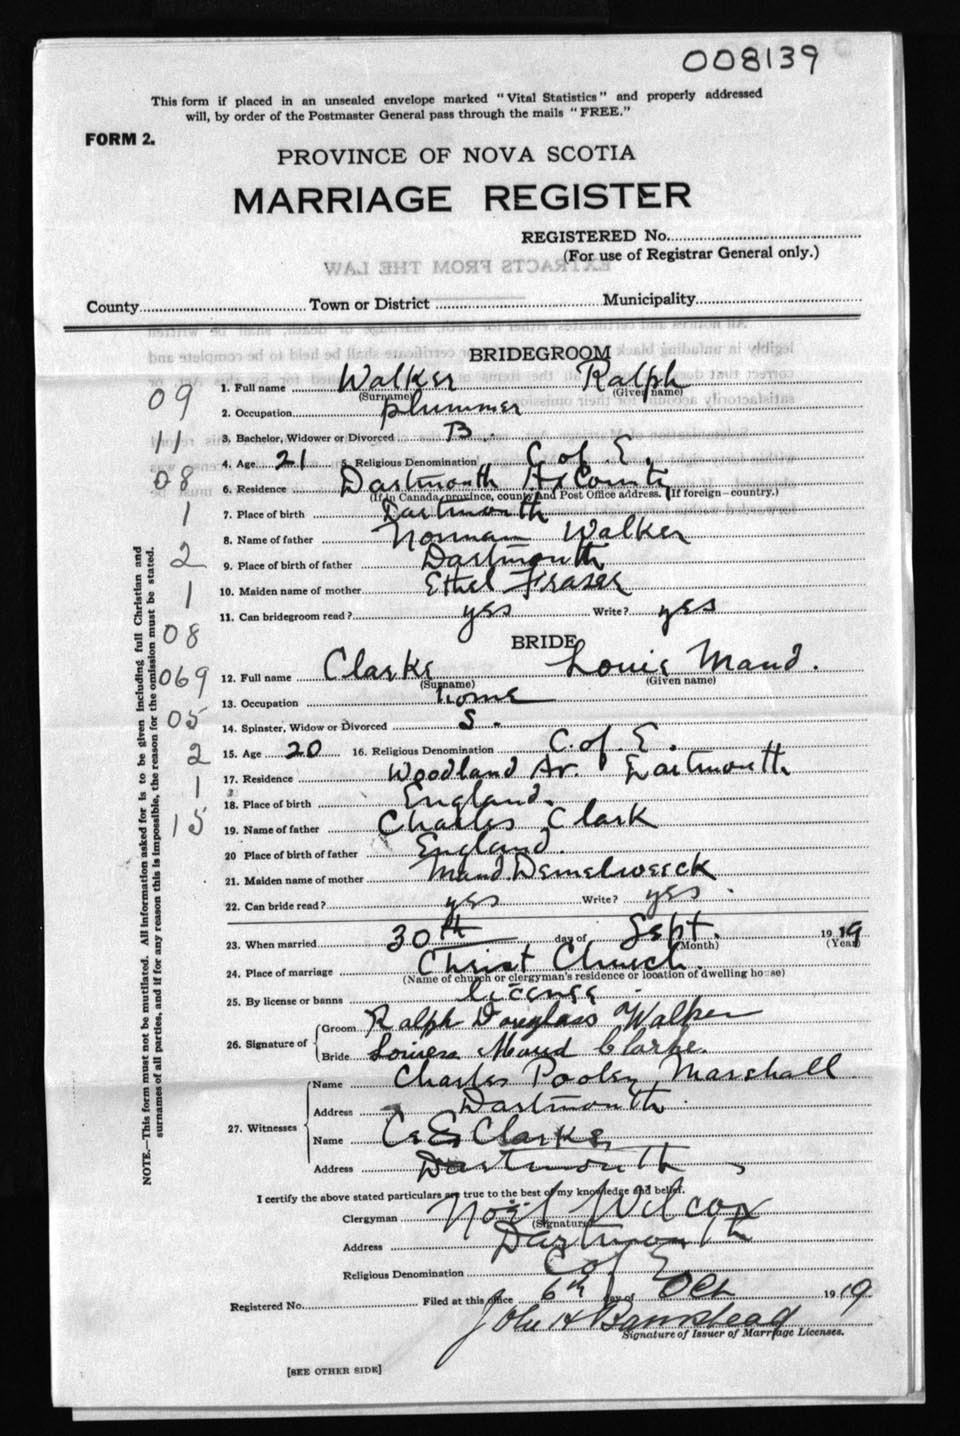 008139
This form if placed in an unsealed envelope marked "Vital Statistics" and properly addressed
will, by order of the Postmaster General pass through the mails "FREE."
FORM 2.
PROVINCE OF NOVA SCOTIA
MARRIAGE REGISTER
REGISTERED No.
(For use of Registrar General only.)
EXTRACTS FROM THE LAW
County Town or District Municipality
BRIDEGROOM
09 1. Full name Walker Ralph
(Surname) (Given name)
2. Occupation plummer
11 3. Bachelor, Widower or Divorced B.
4. Age 21 5. Religious Denomination C of E.
08 6. Residence Dartmouth Hx County
(If in Canada, province, county and Post Office address. If foreign—country.)
1 7. Place of birth Dartmouth
8. Name of father Norman Walker
2 9. Place of birth of father Dartmouth
1 10. Maiden name of mother Ethel Fraser
11. Can bridegroom read? yes Write? yes
08 BRIDE
069 12. Full name Clarke Louie Maud.
(Surname) (Given name)
13. Occupation home
05 14. Spinster, Widow or Divorced S.
2 15. Age 20 16. Religious Denomination C. of E.
1 17. Residence Woodland Av. Dartmouth
18. Place of birth England.
15 19. Name of father Charles Clark
20 Place of birth of father England.
21. Maiden name of mother Maud
22. Can bride read? yes Write? yes
23. When married 30th day of Sept. 1919
(Month) (Year)
24. Place of marriage Christ Church.
(Name of church or clergyman's residence or location of dwelling house)
25. By license or banns license
26. Signature of Groom Ralph Douglass Walker
Bride Maud Clarke.
27. Witnesses Name Charles Pooley Marshall
Address Dartmouth.
Name C. E. Clarke,
Address Dartmouth
I certify the above stated particulars are true to the best of my knowledge and belief.
Clergyman Noel Wilcox
(Signature)
Address Dartmouth
Religious Denomination C of E
Registered No. Filed at this office 6th day of Oct 1919
John H
Signature of Issuer of Marriage Licenses.
[SEE OTHER SIDE]
NOTE.—This form must not be mutilated. All information asked for is to be given including full Christian and
surnames of all parties, and if for any reason this is impossible, the reason for the omission must be stated.